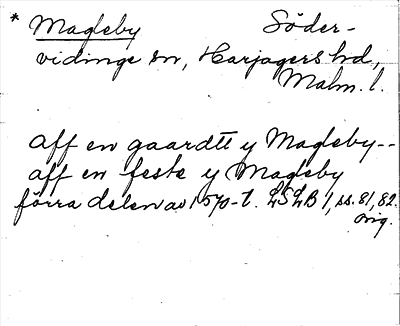 * Magleby Söder-
vidinge sn, Harjagers hd,
Malm. l.
aff en gaardtt y Magleby--
aff en feste y Magleby
förra delen av 1570-t. LSLB 1, ss. 81, 82.
orig.